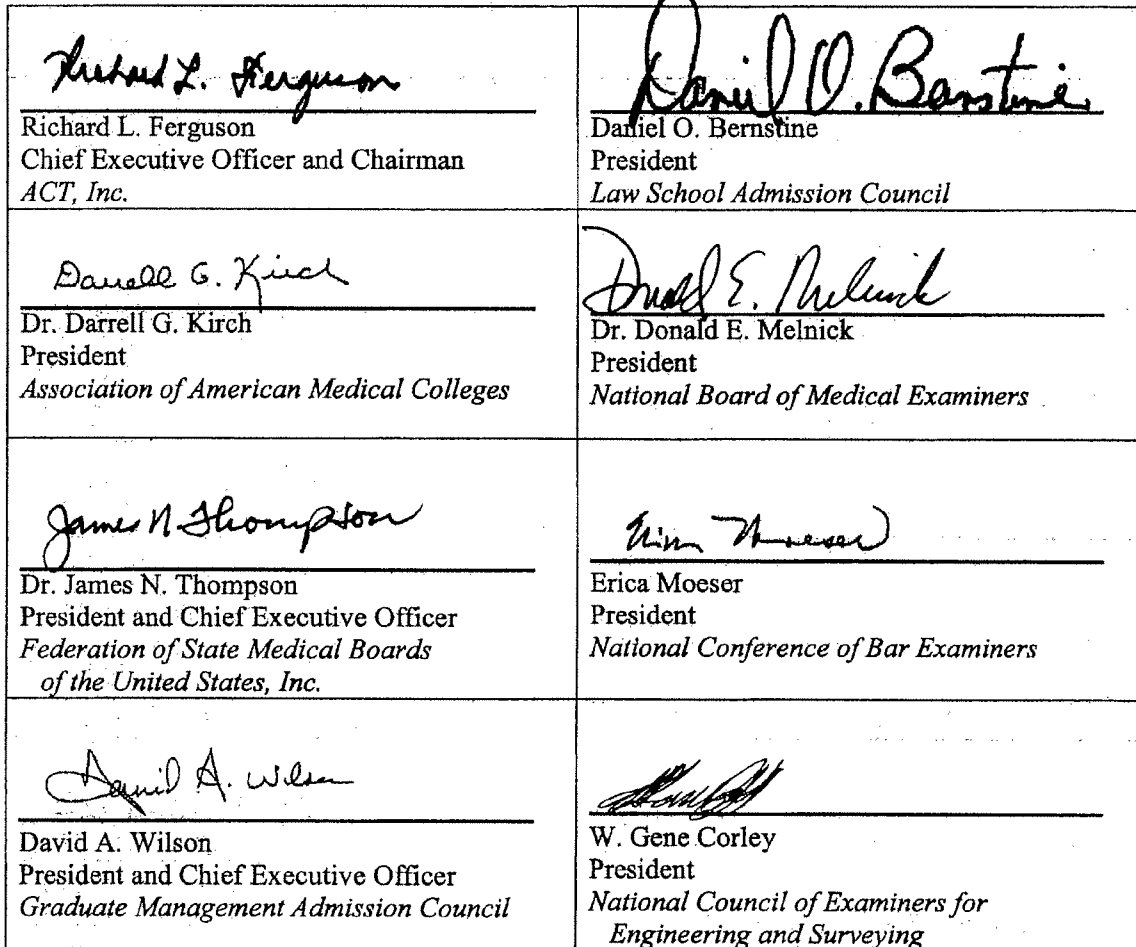 Richard L. Ferguson
Richard L. Ferguson
Chief Executive Officer and Chairman
ACT, Inc.
Daniel O. Bernstine
Daniel O. Bernstine
President
Law School Admission Council
Darrell G. Kirch
Dr. Darrell G. Kirch
President
Association of American Medical Colleges
Donald E. Melnick
Dr. Donald E. Melnick
President
National Board of Medical Examiners
James N Thompson
Dr. James N. Thompson
President and Chief Executive Officer
Federation of State Medical Boards
of the United States, Inc.
Erica Moeser
Erica Moeser
President
National Conference of Bar Examiners
David A. Wilson
David A. Wilson
President and Chief Executive Officer
Graduate Management Admission Council
W. Gene Corley
President
National Council of Examiners for
Engineering and Surveying